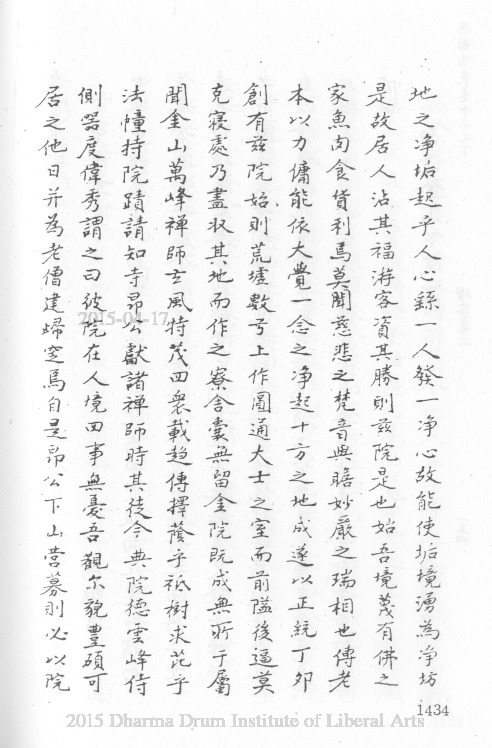 地之净垢起乎人心繇一人發一净心故能使垢境湧為净坊
是故居人沾其福游客資其勝則茲院是也始吾境蔑有佛之
家魚肉食貨利焉莫聞慈悲之梵音與瞻妙嚴之瑞相也傳老
本以力傭能依大覺一念之净起十方之地成遂以正統丁夘
創有茲院始則荒墟數弓上作圓通大士之室而前隘後逼莫
克寢處乃盡収其地而作之寮舍囊無留金院既成無所于屬
聞金山萬峰禅師玄風特茂四衆載趋傳擇蔭乎祇樹求芘乎
法幢持院蹟請知寺昂公獻諸禅師時其徒今典院德雲峰侍
側器度偉秀謂之曰彼院在人境四事無憂吾觀尔貌豊碩可
居之他日并為老僧建㷌空焉自是昂公下山营募則必以院
1434
2015-04-17
2015 Dharma Drum Institute of Liberal Arts